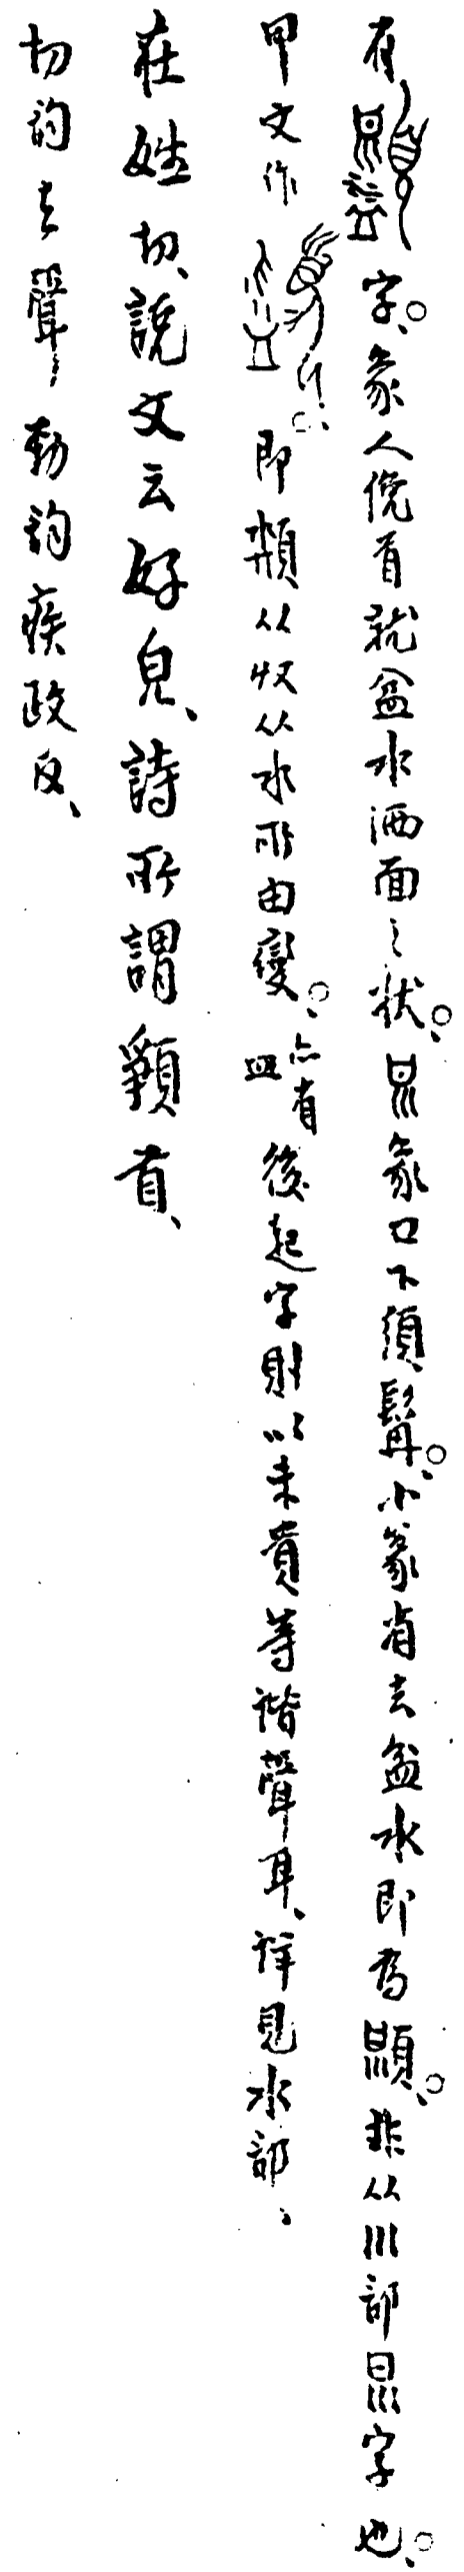 有字、象人俛首就盆水洒面之狀、象口下須髯、小篆省去盆水即為、非从川部字也、
甲文作、即頮从収从水所由變、亦有皿後起字則以未貴等諧聲耳、詳見水部、
在姓切、說文云好皃、詩所謂䫜首、
切韵去聲勁韵疾政反、